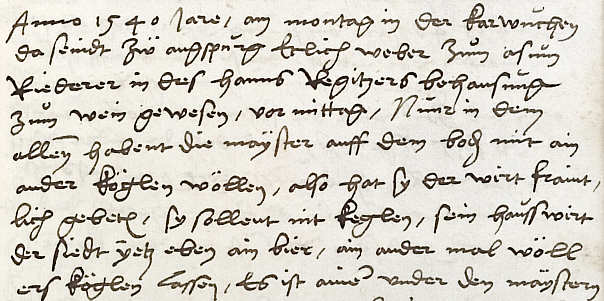 Anno 1540 Jare, am montag in der karwuchen
da seindt zu augspurg Etlich weber zum asum
Riederer in des hanns Regitzers behausung
zum wein gewesen, vor mittag, Nun in dem
allem habent die mayster auff dem boden mit ain
ander keglen wöllen, also hat sy der wirt freunt,
lich gebeten, sy sollent nit keglen, sein hausswirt
der siedt yetz eben ain bier, ain ander mal wöll
ers keglen lassen, Es ist ainer under den maystern